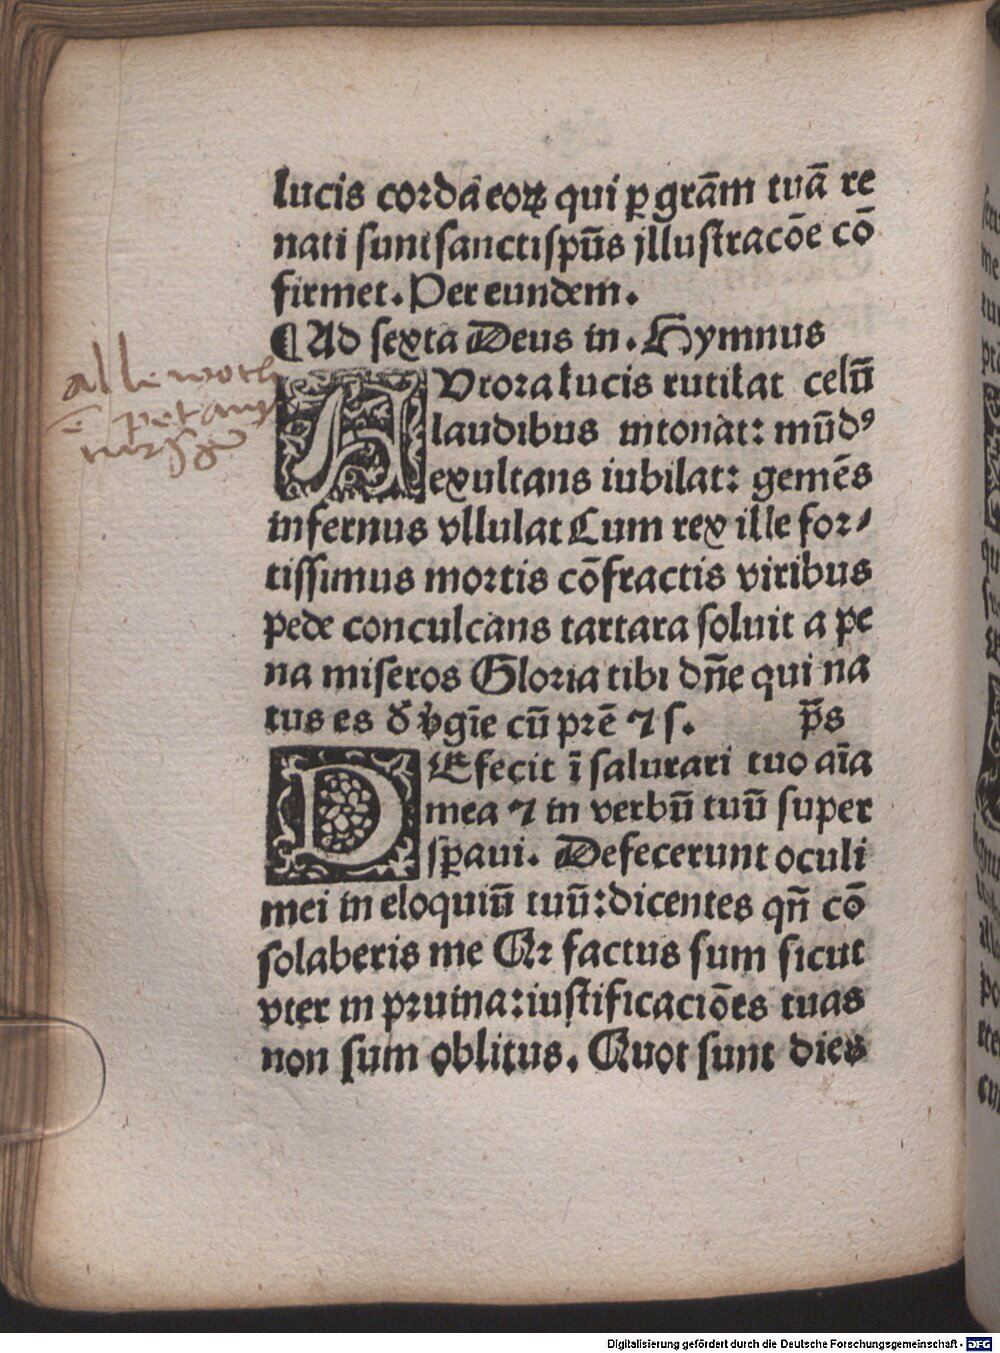 lucis corda eoꝝ qui ꝑ grãm tuã re
nati sunt sanctispũs jllustracõe cõ
firmet. Per eundem.
¶ Ad sexta Deus in. Hymnus
AUrora lucis rutilat celũ
laudibus intonat: mũdꝰ
exultans iubilat: gemẽs
infernus vllulat Cum rex ille for⸗
tissimus mortis cõfractis viribus
pede conculcans tartara soluit a pe
na miseros Gloria tibi dñe qui na
tus es đ v̾gĩe cũ prẽ ⁊ s. p̃s
DEfecit ĩ salutari tuo aĩa
mea ⁊ in verbũ tuũ super
sꝑaui. Defecerunt oculi
mei in eloquiũ tuũ: dicentes qñ cõ
solaberis me Qꝛ factus sum sicut
vter in pruina: iustificaciões tuas
non sum oblitus. Quot sunt dies
Digitalisierung gefördert durch die Deutsche Forschungsgemeinschaft - DFG